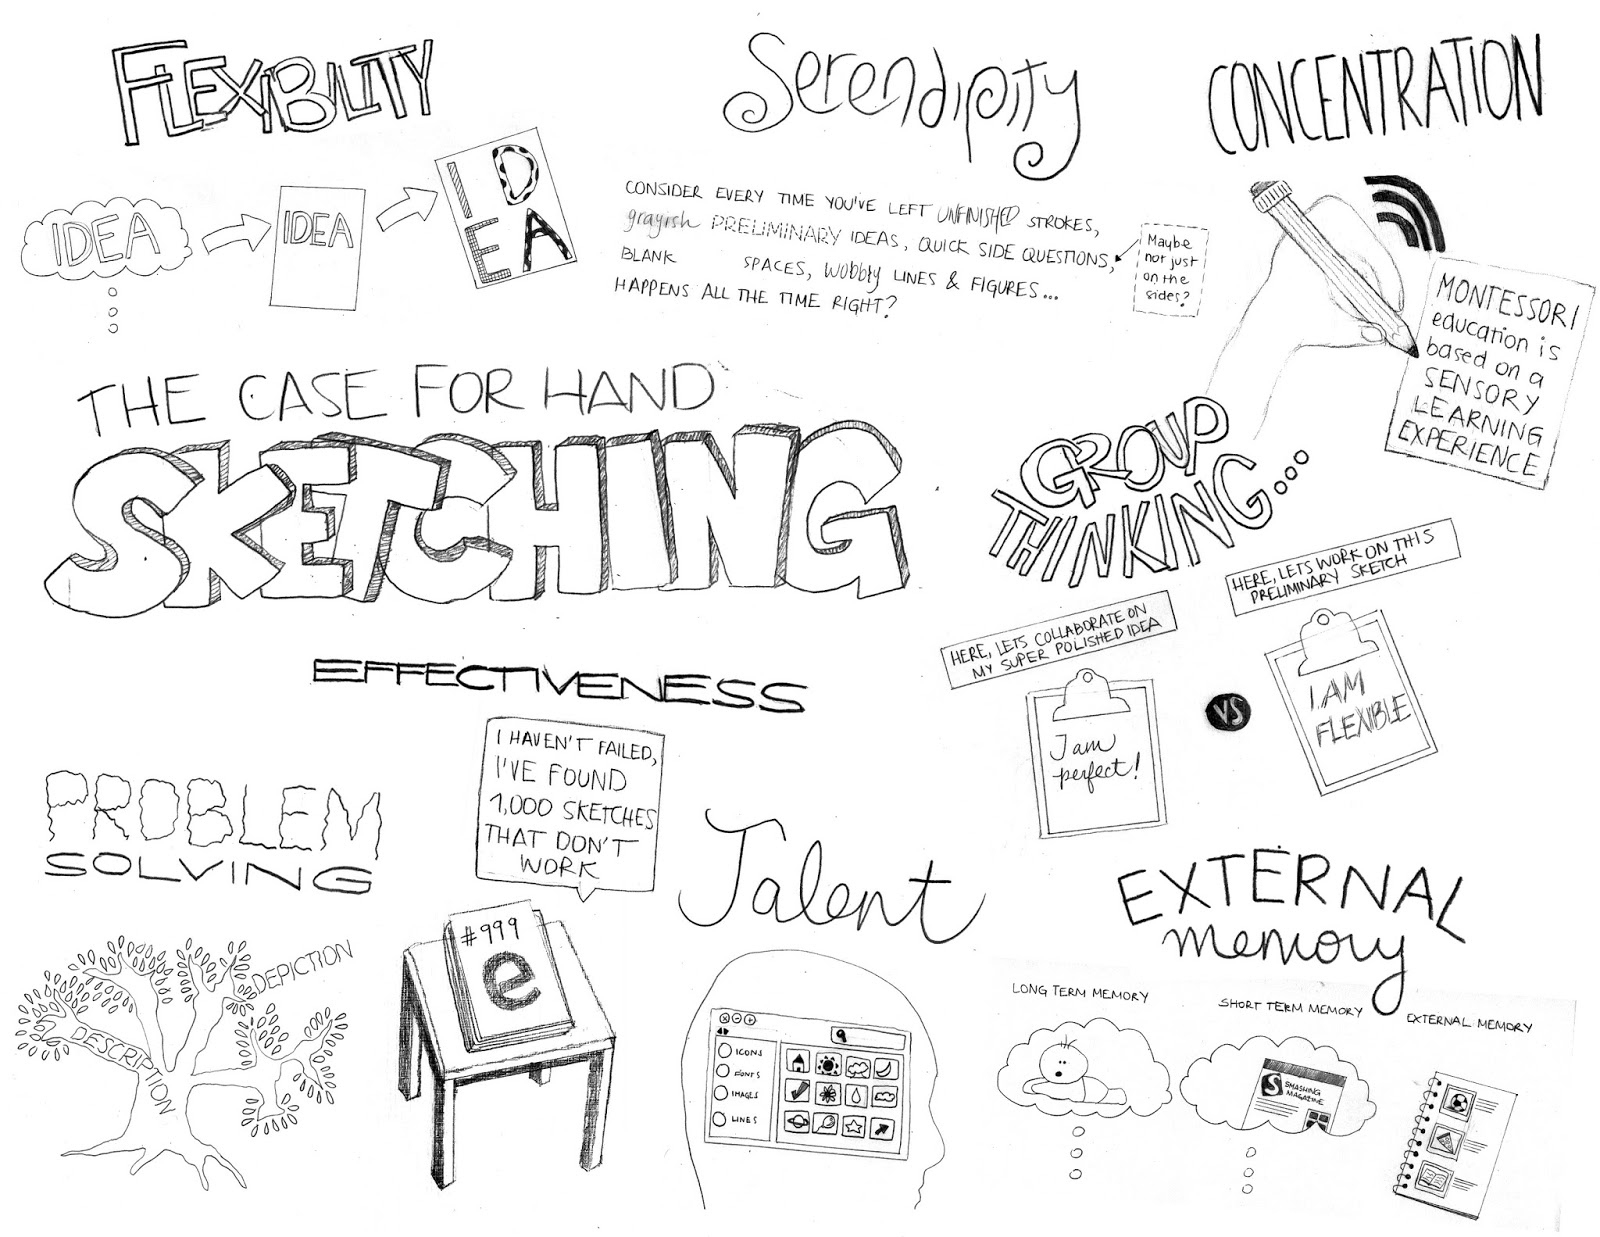 FLEXIBILITY
IDEA
IDEA
IDEA
Serendipity
CONSIDER EVERY TIME YOU'VE LEFT UNFINISHED STROKES,
grayish PRELIMINARY IDEAS, QUICK SIDE QUESTIONS,
BLANK SPACES, wobbly LINES & FIGURES...
HAPPENS ALL THE TIME RIGHT?
Maybe
not just
on the
sides?
CONCENTRATION
MONTESSORI
education is
based on a
SENSORY
LEARNING
EXPERIENCE
THE CASE FOR HAND
SKETCHING
GROUP
THINKING...
HERE, LETS COLLABORATE ON
MY SUPER POLISHED IDEA
I am
perfect!
VS
HERE, LETS WORK ON THIS
PRELIMINARY SKETCH
I AM
FLEXIBLE
EFFECTIVENESS
I HAVEN'T FAILED,
I'VE FOUND
1,000 SKETCHES
THAT DON'T
WORK
#999
e
PROBLEM
SOLVING
DESCRIPTION
DEPICTION
Talent
ICONS
FONTS
IMAGES
LINES
EXTERNAL
memory
LONG TERM MEMORY
SHORT TERM MEMORY
S
SMASHING
MAGAZINE
EXTERNAL MEMORY